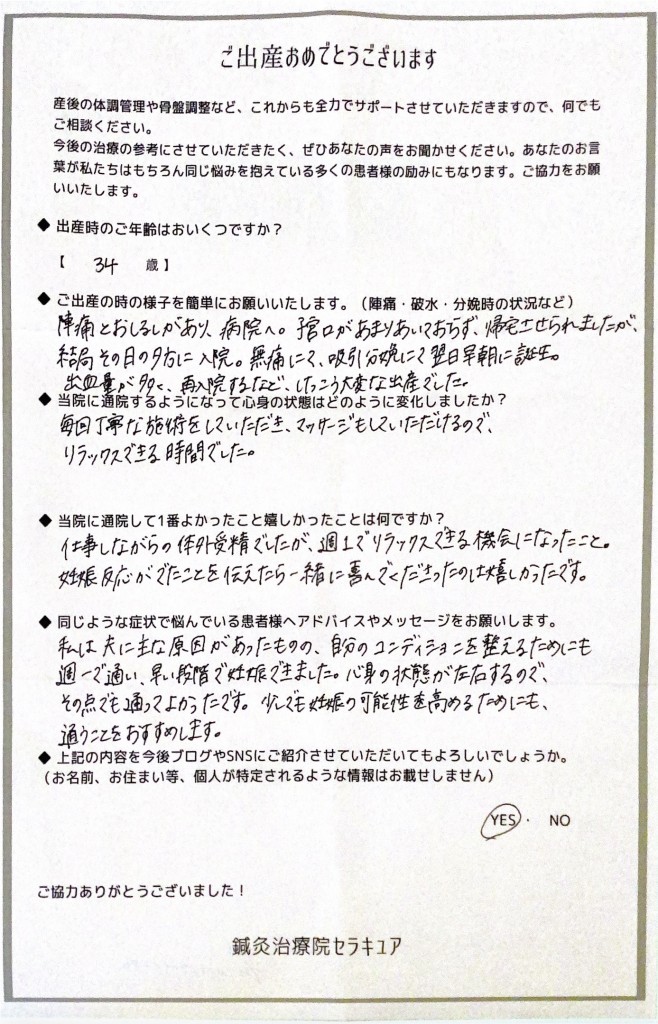 ご出産おめでとうございます
産後の体調管理や骨盤調整など、これからも全力でサポートさせていただきますので、何でも
ご相談ください。
今後の治療の参考にさせていただきたく、ぜひあなたの声をお聞かせください。あなたのお言
葉が私たちはもちろん同じ悩みを抱えている多くの患者様の励みにもなります。ご協力をお願
いいたします。
◆ 出産時のご年齢はおいくつですか？
【 34 歳】
◆ ご出産の時の様子を簡単にお願いいたします。（陣痛・破水・分娩時の状況など）
陣痛とおしるしがあり、病院へ。子宮口があまりあいておらず、帰宅させられましたが、
結局その日の夕方に入院。無痛にて、吸引分娩にて翌日早朝に誕生。
出血量が多く、再入院するなど、けっこう大変な出産でした。
◆ 当院に通院するようになって心身の状態はどのように変化しましたか？
毎回丁寧な施術をしていただき、マッサージもしていただけるので、
リラックスできる時間でした。
◆ 当院に通院して1番よかったこと嬉しかったことは何ですか？
仕事しながらの体外受精でしたが、週1でリラックスできる機会になったこと。
妊娠反応がでたことを伝えたら一緒に喜んでくださったのは嬉しかったです。
◆ 同じような症状で悩んでいる患者様へアドバイスやメッセージをお願いします。
私は夫に主な原因があったものの、自分のコンディションを整えるためにも
週一で通い、早い段階で妊娠できました。心身の状態が左右するので、
その点でも通ってよかったです。少しでも妊娠の可能性を高めるためにも、
通うことをおすすめします。
◆ 上記の内容を今後ブログやSNSにご紹介させていただいてもよろしいでしょうか。
（お名前、お住まい等、個人が特定されるような情報はお載せしません）
YES ・ NO
ご協力ありがとうございました！
鍼灸治療院セラキュア